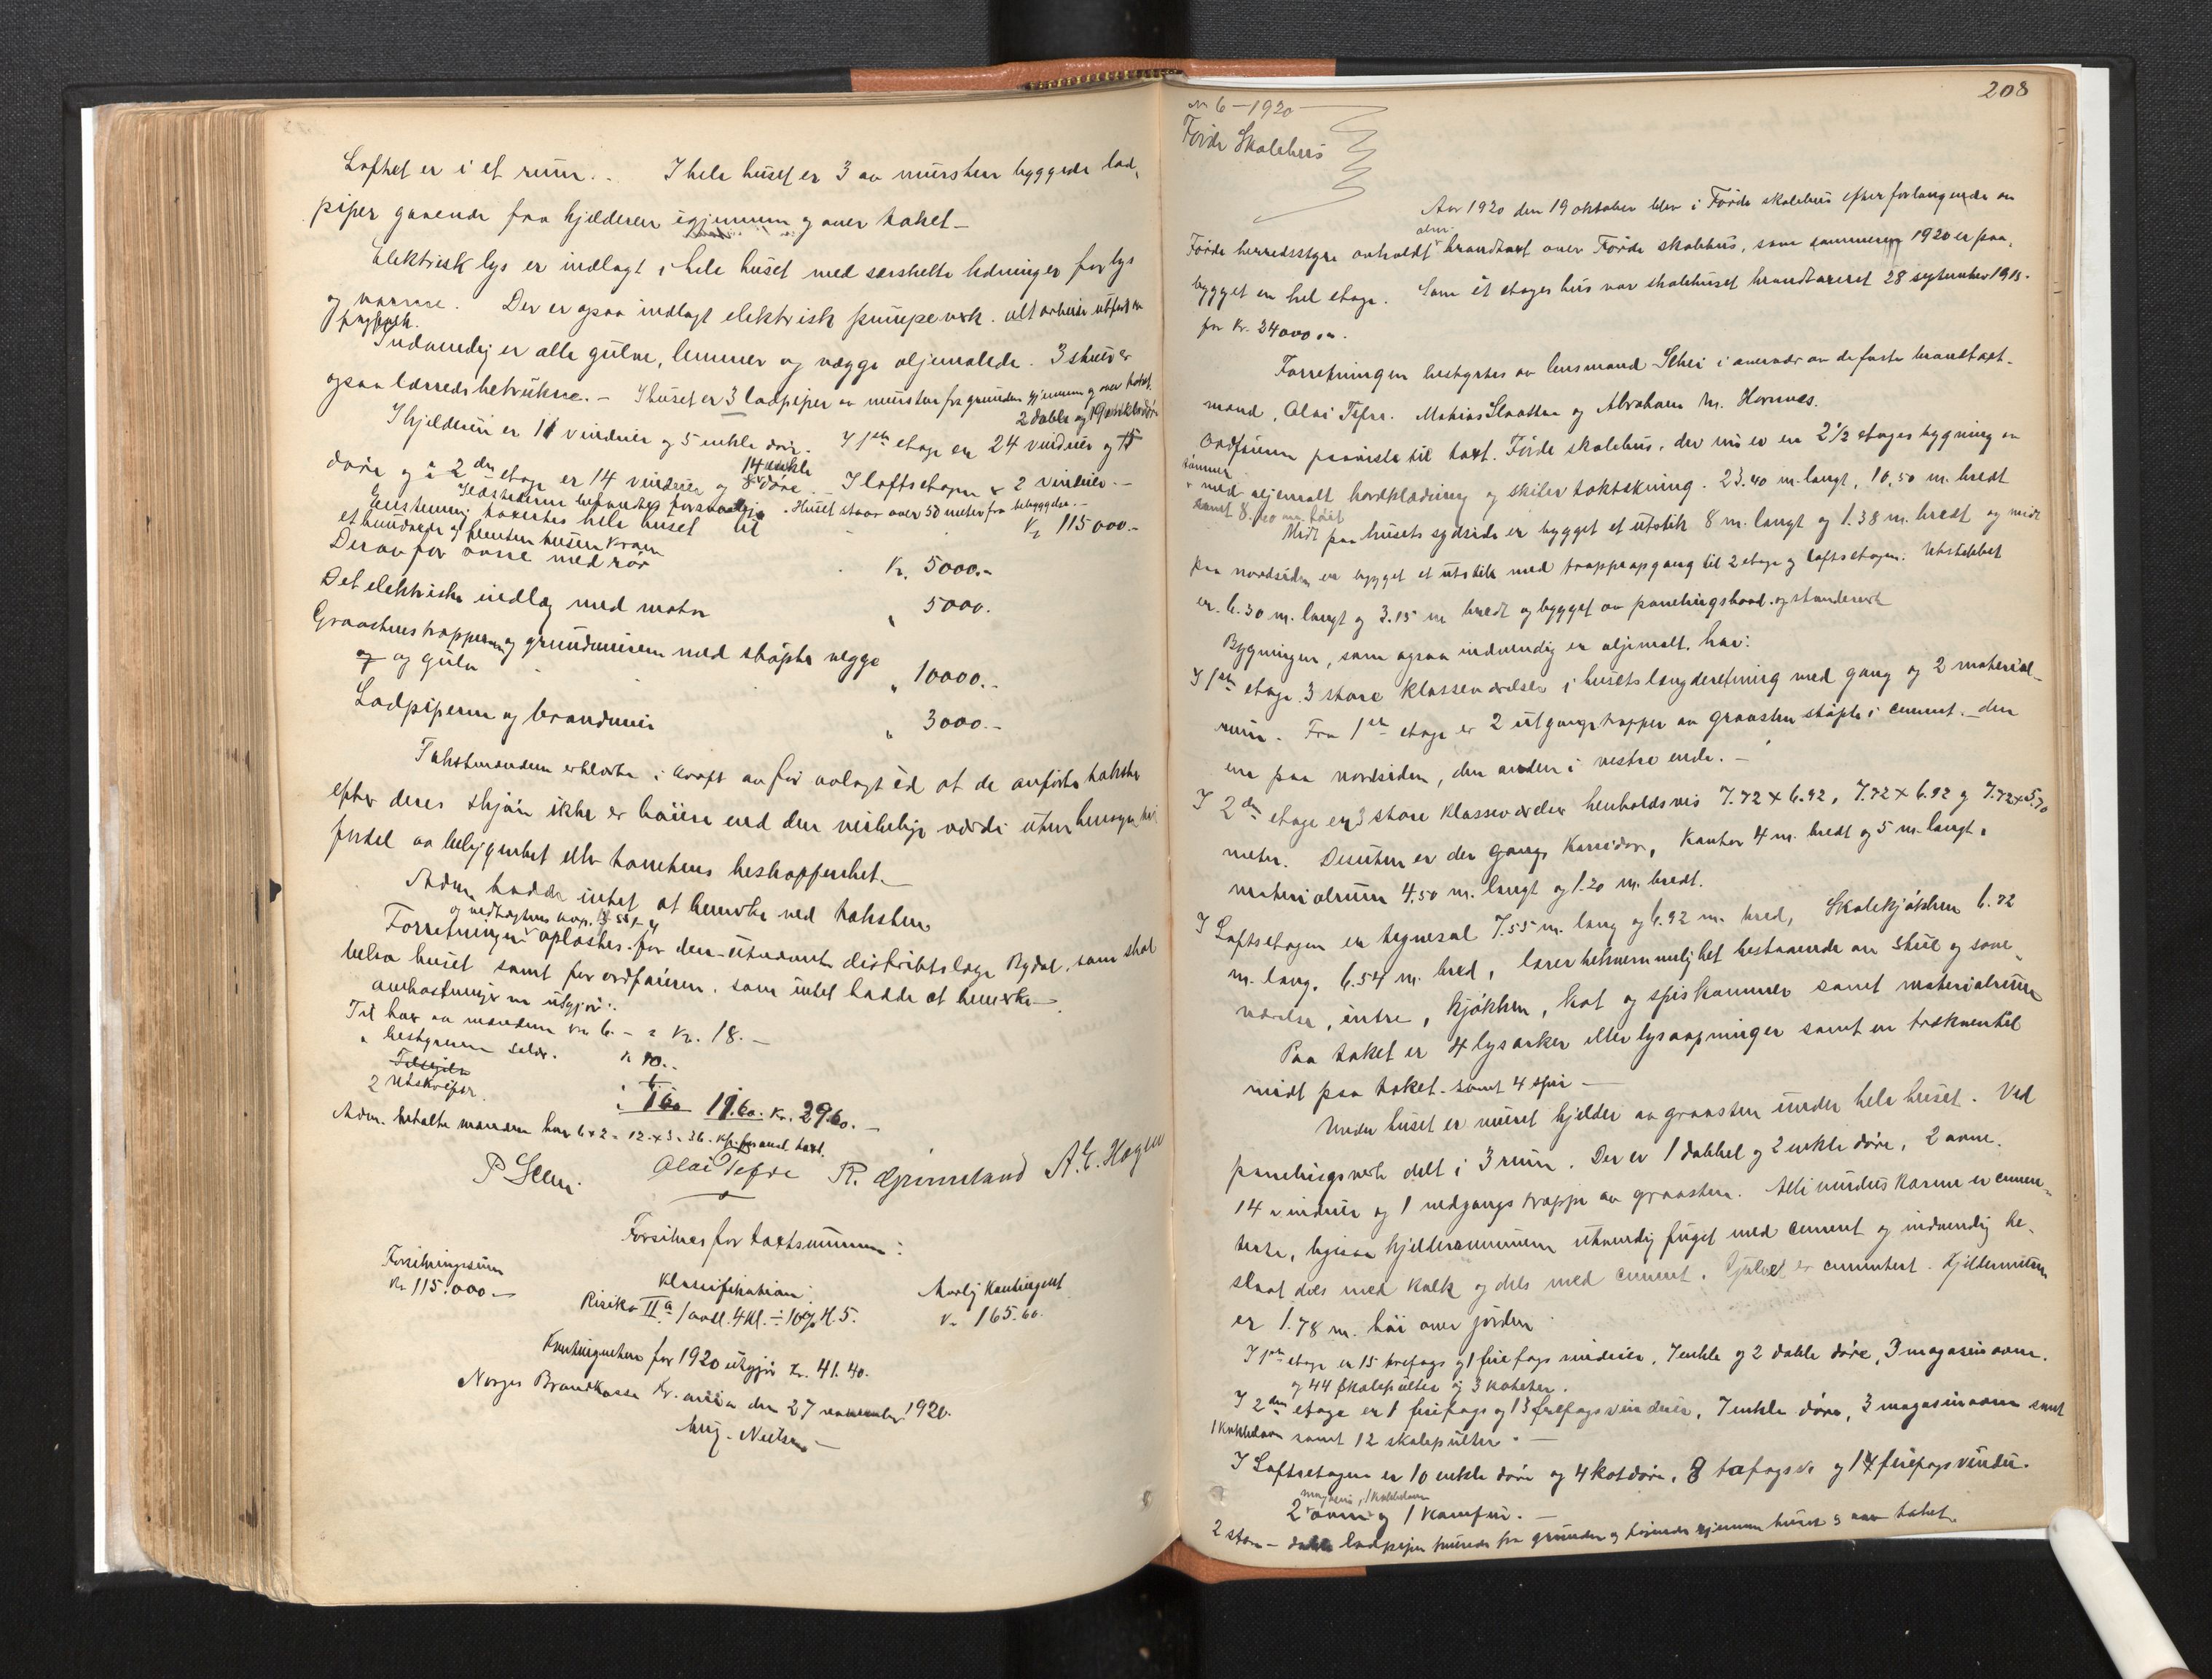 Loftet er i et rum. - I hele huset er 3 av mursten byggede lad-
piper gaaende fra kjælderen igjennem og over taket -
Elektrisk lys er indlagt i hele huset med særskilte ledninger for lys
og varme. Der er ogsaa indlagt elektrisk pumpeverk. Alt arbeide utført av
fagfolk.
Indvendig er alle gulve, lemmer og vægge oljemalede. 3 stuer er
ogsaa lærredsbetrukne. - I huset er 3 ladpiper av mursten fra grunden gjennem og over taket.
2 doble og 19 enkle døre
I kjelderen er 11 vinduer og 5 enkle døre. I 1ste etage er 24 vinduer og 15
døre og i 2den etage er 14 vinduer og 14 enkle døre. I loftsetagen er 2 vinduer. -
Ildstederne befandtes forsvarlige. Huset staar over 50 meter fra bebyggelse. -
Enstemmig taxertes hele huset til Kr. 115 000.-
et hundrede og femten tusen kroner
Derav for ovne med rør Kr. 5000.-
Det elektriske indlæg med motor " 5000.
Graastenstrapperne og grundmuren med støpte vegge
og gulv " 10000.-
Ladpiperne og brandmur " 3000.-
Takstmændene erklærte i kraft av før avlagt ed at de anførte takster
efter deres skjøn ikke er høiere end den virkelige værdi uten hensyn til
fordel av beliggenhet eller tomtens beskaffenhet. -
Adm. hadde intet at bemerke ved taksten
og vedtægtens kap.
Forretningen oplæstes for den utnævnte distriktslæge Rydal, som skal
bebo huset samt for ordføreren, som intet hadde at bemerke -
Omkostninger utgjør:
Til hver av mændene kr 6. - = Kr. 18. -
" bestyreren selv. " 10.-
2 Utskrifter. 1.60 11.60. Kr. 29.60. -
Adm. betalte mændene hver 6 x 2 = 12 x 3 = 36. Kfr. for anden taxt.
P Schei. Olai Tefre R. Grimeland A. E. Hagen
Forsikres for taxtsummen:
Forsikringssum Klassifikation: Aarlig Kontingent
Kr. 115.000.- Risiko IIa 1 avd. 4 Kl. ÷ 10% H. 5. Kr. 165.60.
Kontingenten for 1920 utgjør kr. 41.40.
Norges Brandkasse Kr.ania den 27 november 1920.
Aug. Nielsen -
208
No 6 - 1920
Førde Skolehus
Aar 1920 den 19 oktober blev i Førde skolehus efter forlangende av
Førde herredsstyre avholdt brandtaxt over Førde skolehus, som sommeren 1920 er paa-
bygget en hel etage. Som et etages hus var skolehuset brandtaxeret 28 september 1915.
for Kr. 24000.00.
Forretningen bestyrtes av lensmand Schei i overvær av de faste branntaxt-
mænd, Olai Tefre. Mathias Slaatten og Abraham M. Hornnes.
Ordføreren paaviste til taxt. Førde skolehus, der nu er en 2 1/2 etages bygning av
tømmer
med oljemalt bordklædning og skifer taktækning. 23.40 m. langt, 10,50 m. bredt
samt 8.20 m. høit
Midt paa husets sydside er bygget et utstik 8 m. langt og 1.38 m. bredt og midt
paa nordsiden er bygget et utstik med trappeopgang til 2 etage og loftsetagen. Utstikket
er 6.30 m. langt og 3.15 m bredt og bygget av panelingsbord og standerverk
Bygningen, som ogsaa indvendig er oljemalt, har:
I 1ste etage 3 store klasseværelser i husets længderetning med gang og 2 material-
rum. Fra 1ste etage er 2 utgangstrapper av graasten støpte i cement. - den
ene paa nordsiden, den anden i vestre ende. -
I 2den etage er 3 store klasseværelser henholdsvis 7.72 x 6.92, 7.72 x 6.92 og 7.72 x 5.70
meter. Desuten er der gang, korridor, kontor 4 m. bredt og 5 m. langt.
materialrum 4,50 m. langt og 1.20 m. bredt.
I Loftsetagen er tegnesal 7.55 m. lang og 6.92 m. bred, Skolekjøkken 6.72
m. lang, 6.54 m. bred, lærerbekvemmelighet bestaaende av stue og sove-
værelse, entre, kjøkken, kot og spiskammer samt materialrum
Paa taket er 4 lysarker eller lysaapninger samt en trækventil
midt paa taket - samt 4 spir -
Under huset er muret kjelder av graasten under hele huset. Ved
panelingsverk delt i 3 rum. Der er 1 dobbel og 2 enkle døre, 2 ovne.
14 vinduer og 1 nedgangstrappe av graasten. Alle vindus karme er cemen-
terte, ogsaa kjeldermurene utvendig fuget med cement og indvendig be-
slaat dels med kalk og dels med cement. Gulvet er cementert. Kjeldermuren
er 1.78 m. høi over jorden
I 1ste etage er 15 trefags og 1 firefags vinduer, 7 enkle og 2 doble døre, 3 magasinovne.
og 44 skolepulter og 3 kateter.
I 2den etage er 1 firefags og 13 trefagsvinduer, 7 enkle døre, 3 magasinovne samt
1 kokkelovn samt 12 skolepulter. -
I Loftsetagen er 10 enkle døre og 4 kotdøre, 8 tofags og 14 firefagsvindu.
magasin, 1 kokkelovn
2 ovne og 1 komfur. -
2 store - doble ladpiper murede fra grunden og førende gjennem huset og over taket.